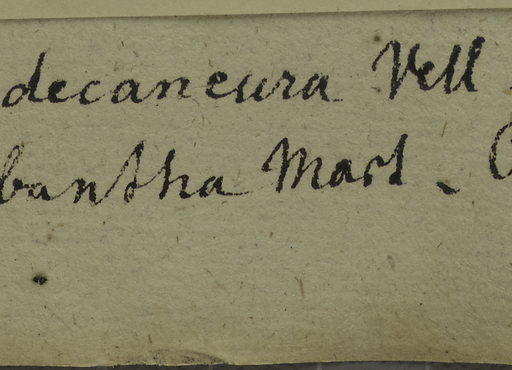 decaneura Vell
bantha Mart.